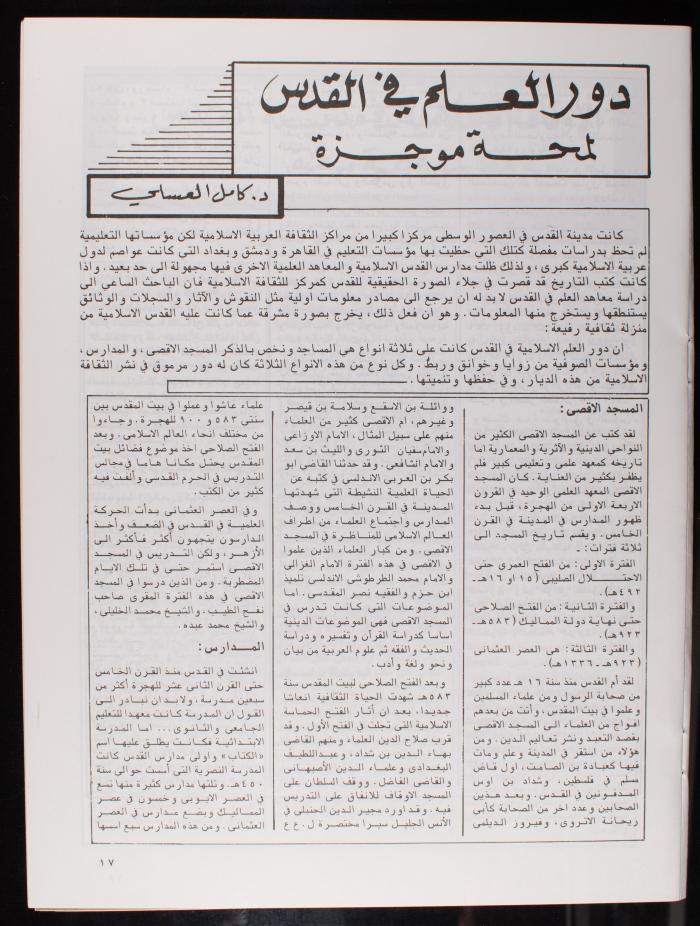 دور العلم في القدس
لمحة موجزة
د. كامل العسلي
كانت مدينة القدس في العصور الوسطى مركزا كبيرا من مراكز الثقافة العربية الاسلامية لكن مؤسساتها التعليمية
لم تحظ بدراسات مفصلة كتلك التي حظيت بها مؤسسات التعليم في القاهرة ودمشق وبغداد التي كانت عواصم لدول
عربية اسلامية كبرى، ولذلك ظلت مدارس القدس الاسلامية والمعاهد العلمية الاخرى فيها مجهولة الى حد بعيد. واذا
كانت كتب التاريخ قد قصرت في جلاء الصورة الحقيقية للقدس كمركز للثقافة الاسلامية فان الباحث الساعي الى
دراسة معاهد العلم في القدس لا بد له ان يرجع الى مصادر معلومات اولية مثل النقوش والآثار والسجلات والوثائق
يستنطقها ويستخرج منها المعلومات. وهو ان فعل ذلك، يخرج بصورة مشرقة عما كانت عليه القدس الاسلامية من
منزلة ثقافية رفيعة:
ان دور العلم الاسلامية في القدس كانت على ثلاثة انواع هي المساجد ونخص بالذكر المسجد الاقصى، والمدارس،
ومؤسسات الصوفية من زوايا وخوانق وربط. وكل نوع من هذه الانواع الثلاثة كان له دور مرموق في نشر الثقافة
الاسلامية من هذه الديار، وفي حفظها وتنميتها.
المسجد الاقصى:
لقد كتب عن المسجد الاقصى الكثير من
النواحي الدينية والأثرية والمعمارية اما
تاريخه كمعهد علمي وتعليمي كبير فلم
يظفر بكثير من العناية. كان المسجد
الاقصى المعهد العلمي الوحيد في القرون
الاربعة الاولى من الهجرة، قبل بدء
ظهور المدارس في المدينة في القرن
الخامس. ويقسم تاريخ المسجد الى
ثلاثة فترات: ـ
الفترة الاولى: من الفتح العمرى حتى
الاحتـــلال الصليبي (١٥ او ١٦هـ ـ
٤٩٢هـ).
والفترة الثانية: من الفتح الصلاحي
حتى نهاية دولة المماليك (٥٨٣هـ ـ
٩٢٣هـ).
والفترة الثالثة: هي العصر العثماني
(٩٢٣هـ ـ ١٣٣٦هـ).
لقد أم القدس منذ سنة ١٦هـ عدد كبير
من صحابة الرسول ومن علماء المسلمين
وعلموا في بيت المقدس، وأتت من بعدهم
افواج من العلماء الى المسجد الاقصى
بقصد التعبد ونشر تعاليم الدين. ومن
هؤلاء من استقر في المدينة وعلم ومات
فيها كعبادة بن الصامت، اول قاض
مسلم في فلسطين، وشداد بن اوس
المدفونين في القدس. وبعد هذين
الصحابين وعدد اخر من الصحابة كأبي
ريحانة الاتروى، وفيروز الديلمى
وواثلة بن الاسقع وسلامة بن قيصر
وغيرهم، ام الاقصى كثير من العلماء
منهم على سبيل المثال، الامام الاوزاعي
والامام سفيان الثوري والليث بن سعد
والامام الشافعي. وقد حدثنا القاضي ابو
بكر بن العربي الاندلسي في كتبه عن
الحياة العلمية النشيطة التي شهدتها
المدينة في القرن الخامس ووصف
المدارس واجتماع العلماء من اطراف
العالم الاسلامي للمناظرة في المسجد
الاقصى. ومن كبار العلماء الذين علموا
في الاقصى في هذه الفترة الامام الغزالي
والامام محمد الطرطوشي الاندلسي تلميذ
ابن حزم والفقيه نصر المقدسي. اما
الموضوعات التي كانت تدرس في
المسجد الاقصى فهي الموضوعات الدينية
اساسا كدراسة القرآن وتفسيره ودراسة
الحديث والفقه ثم علوم العربية من بيان
ونحو ولغة وأدب.
وبعد الفتح الصلاحي لبيت المقدس سنة
٥٨٣هـ شهدت الحياة الثقافية انعاشا
جديدا، بعد ان أثار الفتح الحماسة
الاسلامية التي تجلت في الفتح الأول. وقد
قرب صلاح الدين العلماء ومنهم القاضي
بهاء الدين بن شداد، وعبد اللطيف
البغدادي وعلماء الدين الأصبهاني
والقاضي الفاضل. ووقف السلطان على
المسجد الاوقاف للانفاق على التدريس
فيه. وقد اورد مجير الدين الحنبلي في
الأنس الجليل سيرا مختصرة ل٤٤٠
علماء عاشوا وعملوا في بيت المقدس بين
سنتي ٥٨٣ و٩٠٠ للهجرة. وجاءوا
من مختلف انحاء العالم الاسلامي. وبعد
الفتح الصلاحي اخذ موضوع فضائل بيت
المقدس يحتل مكانا هاما في مجالس
التدريس في الحرم القدسي وألفت فيه
كثير من الكتب.
وفي العصر العثماني بدأت الحركة
العلمية في القدس في الضعف وأخذ
الدارسون يتجهون أكثر فأكثر الى
الأزهر، ولكن التدريس في المسجد
الاقصى استمر حتى في تلك الايام
المضطربة. ومن الذين درسوا في المسجد
الاقصى في هذه الفترة المقري صاحب
نفح الطيب، والشيخ محمد الخليلي،
والشيخ محمد عبده.
المــدارس:
انشئت في القدس منذ القرن الخامس
حتى القرن الثاني عشر للهجرة أكثر من
سبعين مدرسة، ولابد ان نبادر الى
القول ان المدرسة كانت معهدا للتعليم
الجامعي والثانوي... اما المدرسة
الابتدائية فكانت يطلق عليها اسم
«الكتاب» واولى مدارس القدس كانت
المدرسة النصرية التي أسست حوالى سنة
٤٥٠هـ. وتلتها مدارس كثيرة منها تسع
في العصر الايوبي وخمسون في عصر
المماليك وبضع مدارس في العصر
العثماني. ومن هذه المدارس سبع اسسها
١٧